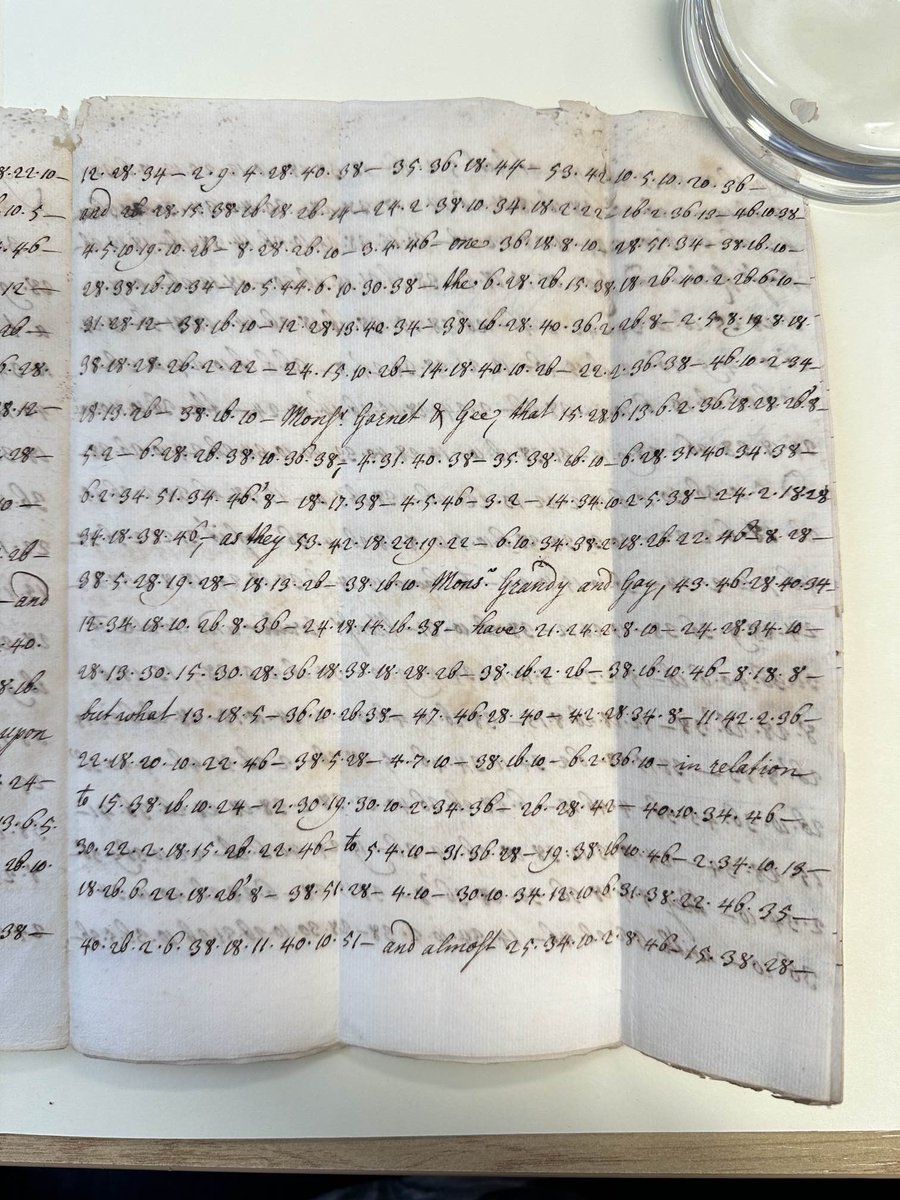 8.22.10— 12.28.34— 2.9.4.28.40.38— 35.36.18.44— 53.42.10.5.10.20.36—
.10.5— and 28.15.38.16.18.26.14— 24.2.38.10.34.18.2.22— 16.2.36.13— 46.10.38
.4.6— 4.5.10.19.10.26— 8.28.26.10— 3.4.46— one 36.18.8.10— 28.51.34— 38.16.10—
12— 28.38.16.10.34— 10.5.44.6.10.30.38— the 6.28.26.15.38.18.26.40.2.26.6.10—
26— 31.28.12— 38.16.10— 12.28.13.40.34— 38.16.28.40.36.2.26.8— 2.5.8.19.8.18.
6.28. 38.18.28.26.2.22— 24.15.10.26— 14.18.40.10.26— 22.2.36.38— 46.10.2.34—
8.12— 18.13.26— 38.16.10— Monsr. Garnet & Gee, that 15.28.6.13.6.2.36.18.28.26'8—
28— 5.2— 6.28.26.38.10.36.38, 4.31.40.38— 35.38.16.10— 6.28.31.40.34.38—
0— 6.2.34.51.34.46'8— 18.17.38— 4.5.46— 3.2— 14.34.10.2.5.38— 24.2.18.28
.26— 34.18.38.46; as they 53.42.18.22.19.22— 6.10.34.38.2.18.26.22.46— 8.28—
—and 38.5.28.19.28— 18.13.26— 38.16.10 Monsr. Grandy and Gay, 43.46.28.40.34—
.40. 12.34.18.10.26.8.36— 24.18.14.16.38— have 21.24.2.8.10— 24.28.34.10—
8.16. 28.13.30.15.30.28.36.18.38.18.28.26— 38.16.2.26— 38.16.10.46— 8.18.8—
upon but what 13.18.5— 36.10.26.38— 47.46.28.40— 42.28.34.8— 11.42.2.36—
.24— 22.18.20.10.22.46— 38.5.28— 4.7.10— 38.16.10— 6.2.36.10— in relation
13.6.5. to 15.38.16.10.24— 2.30.19.30.10.2.34.36— 26.28.42— 40.10.34.46—
26.10 30.22.2.18.15.26.22.46— to 5.4.10— 31.36.28— 19.38.16.10.46— 2.34.10.13—
18.26.6.22.18.26'8— 38.51.28— 4.10— 30.10.34.12.10.6.31.38.22.46.35—
38— 40.26.2.6.38.18.11.40.10.51— and almost 25.34.10.2.8.46— 15.38.28—